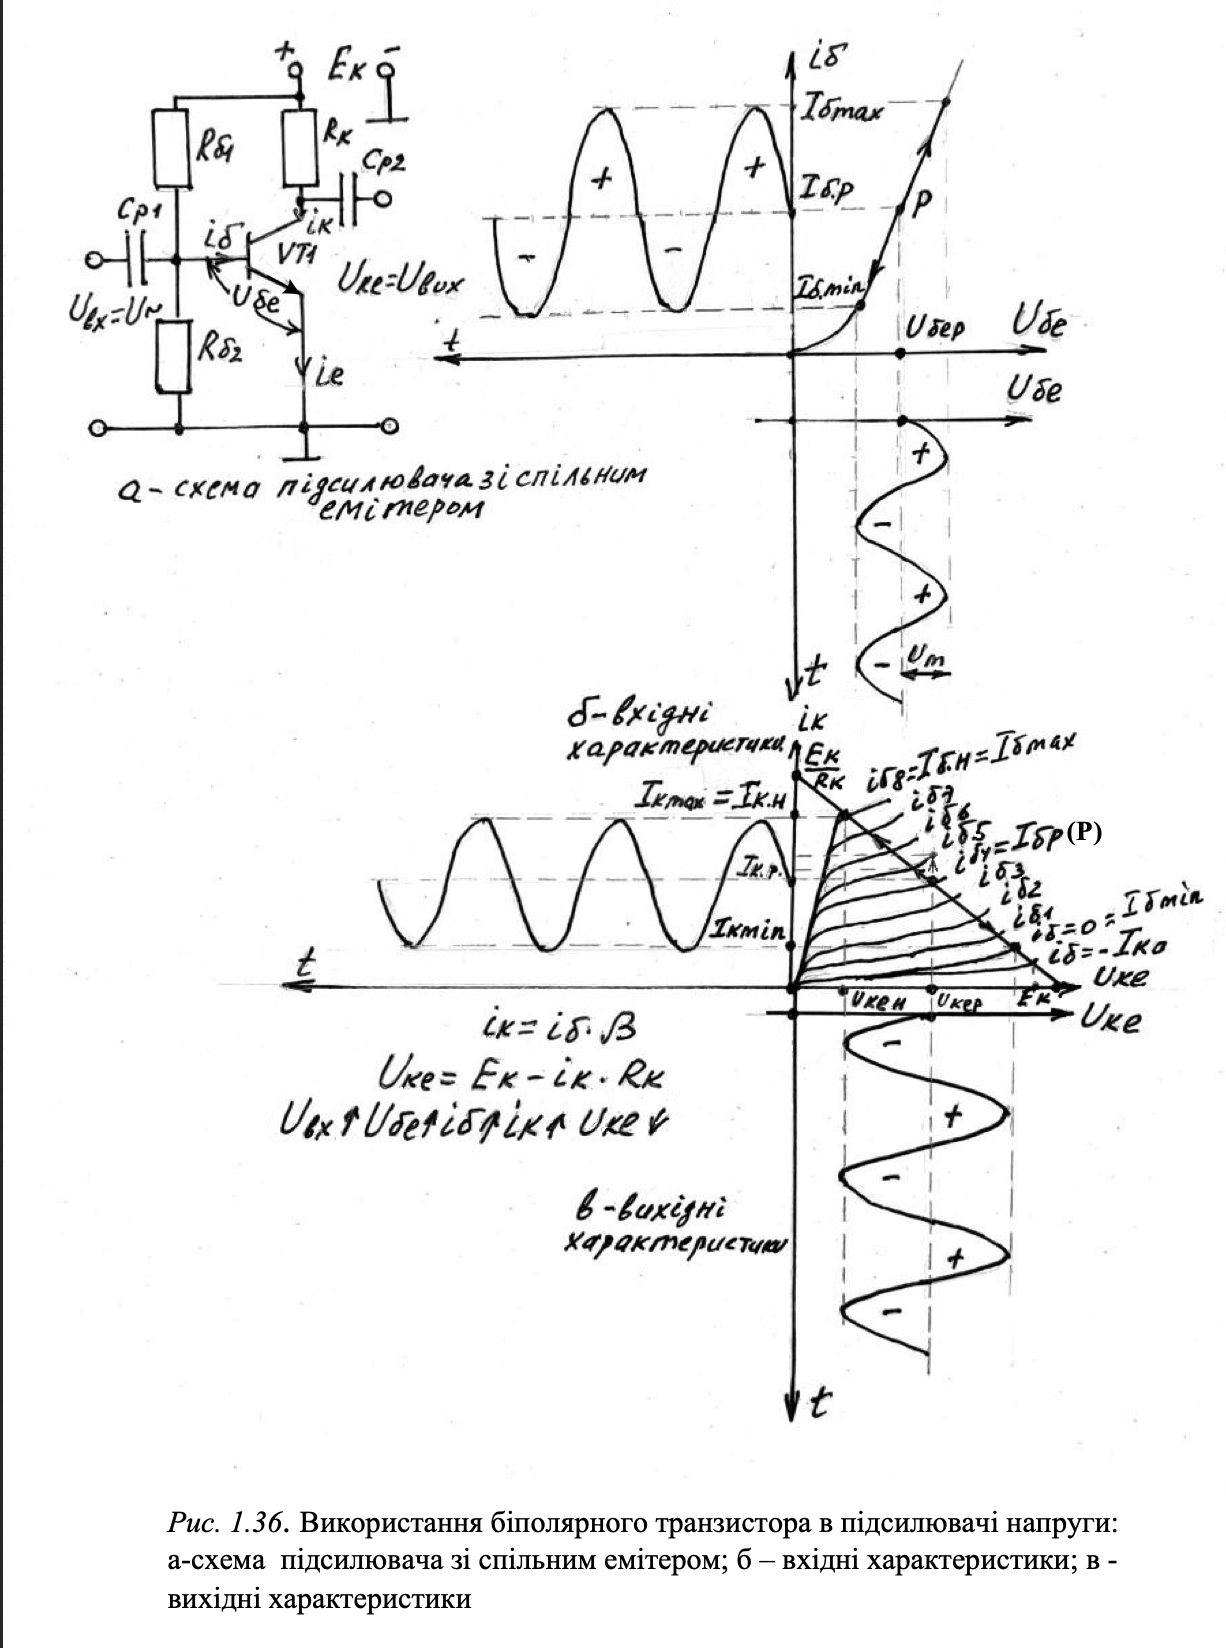 + Eк -
Rб1
Rк
Cр2
Cр1
iб
iк
VT1
Uбе
Uке=Uвих
Uвх=U~
Rб2
iе
а- схема підсилювача зі спільним
емітером
iб
Iбmax
Iб.р
P
Iб.min
Uбер
Uбе
t
Uбе
+
-
+
-
Um
t
+
-
+
-
б-вхідні
характеристики
iк
Eк
Rк
Iкmax = Iк.н
Iк.р.
Iкmin
iб8=Iб.н=Iбmax
iб7
iб6
iб5
iб4=Iбр(Р)
iб3
iб2
iб1
iб=0=Iбmin
iб=-Iко
t
Uкен
Uкер
Eк
Uке
Uке
iк= iб·β
Uке= Eк-iк·Rк
Uвх↑Uбе↑iб↑iк↑Uке↓
в-вихідні
характеристики
-
+
-
+
-
t
Рис. 1.36. Використання біполярного транзистора в підсилювачі напруги:
а-схема підсилювача зі спільним емітером; б – вхідні характеристики; в -
вихідні характеристики